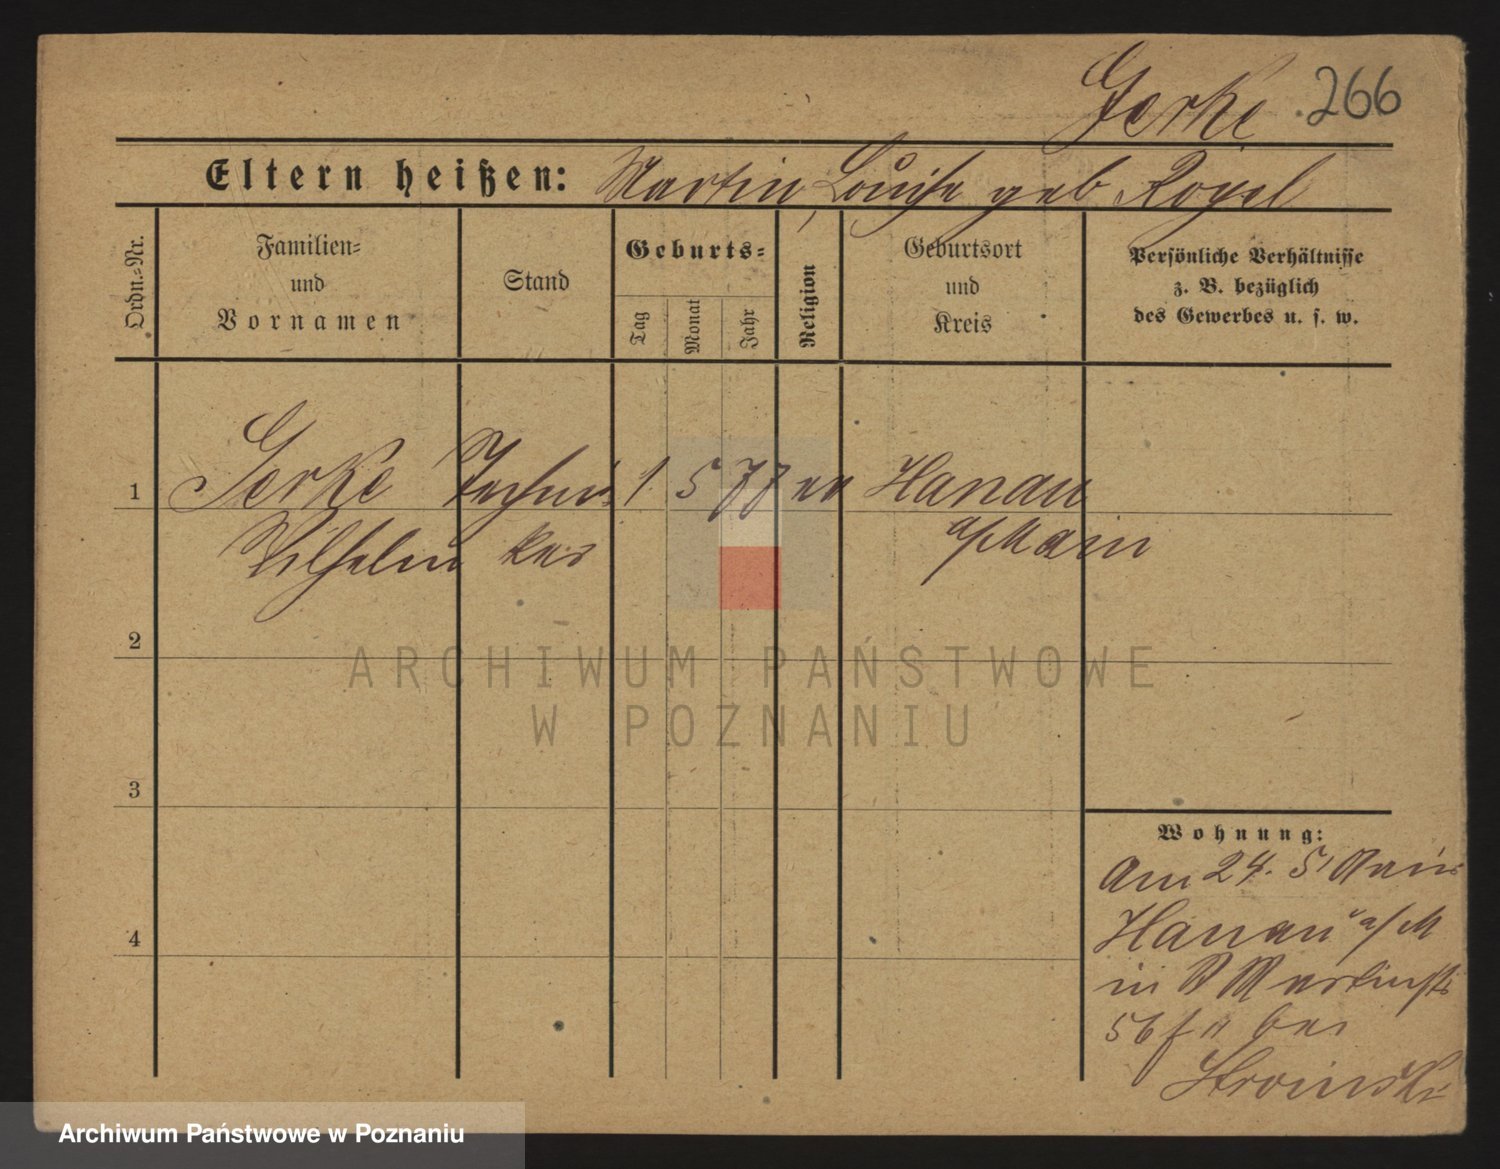 Jerke 266
Eltern heißen: Martin, Louise geb
Ordn.-Nr.
Familien-
und
Vornamen
Stand
Geburts-
Tag
Monat
Jahr
Religion
Geburtsort
und
Kreis
Persönliche Verhältnisse
z. B. bezüglich
des Gewerbes u. s. w.
1 Jerke Techni 1 5 77 ev Hanau
Wilhelm ker a/Main
2
3
4
Wohnung:
Am 24. 5.
Hanau a/M
in Martinstr
56 bei
Stroinski
ARCHIWUM PAŃSTWOWE
W POZNANIU
Archiwum Państwowe w Poznaniu